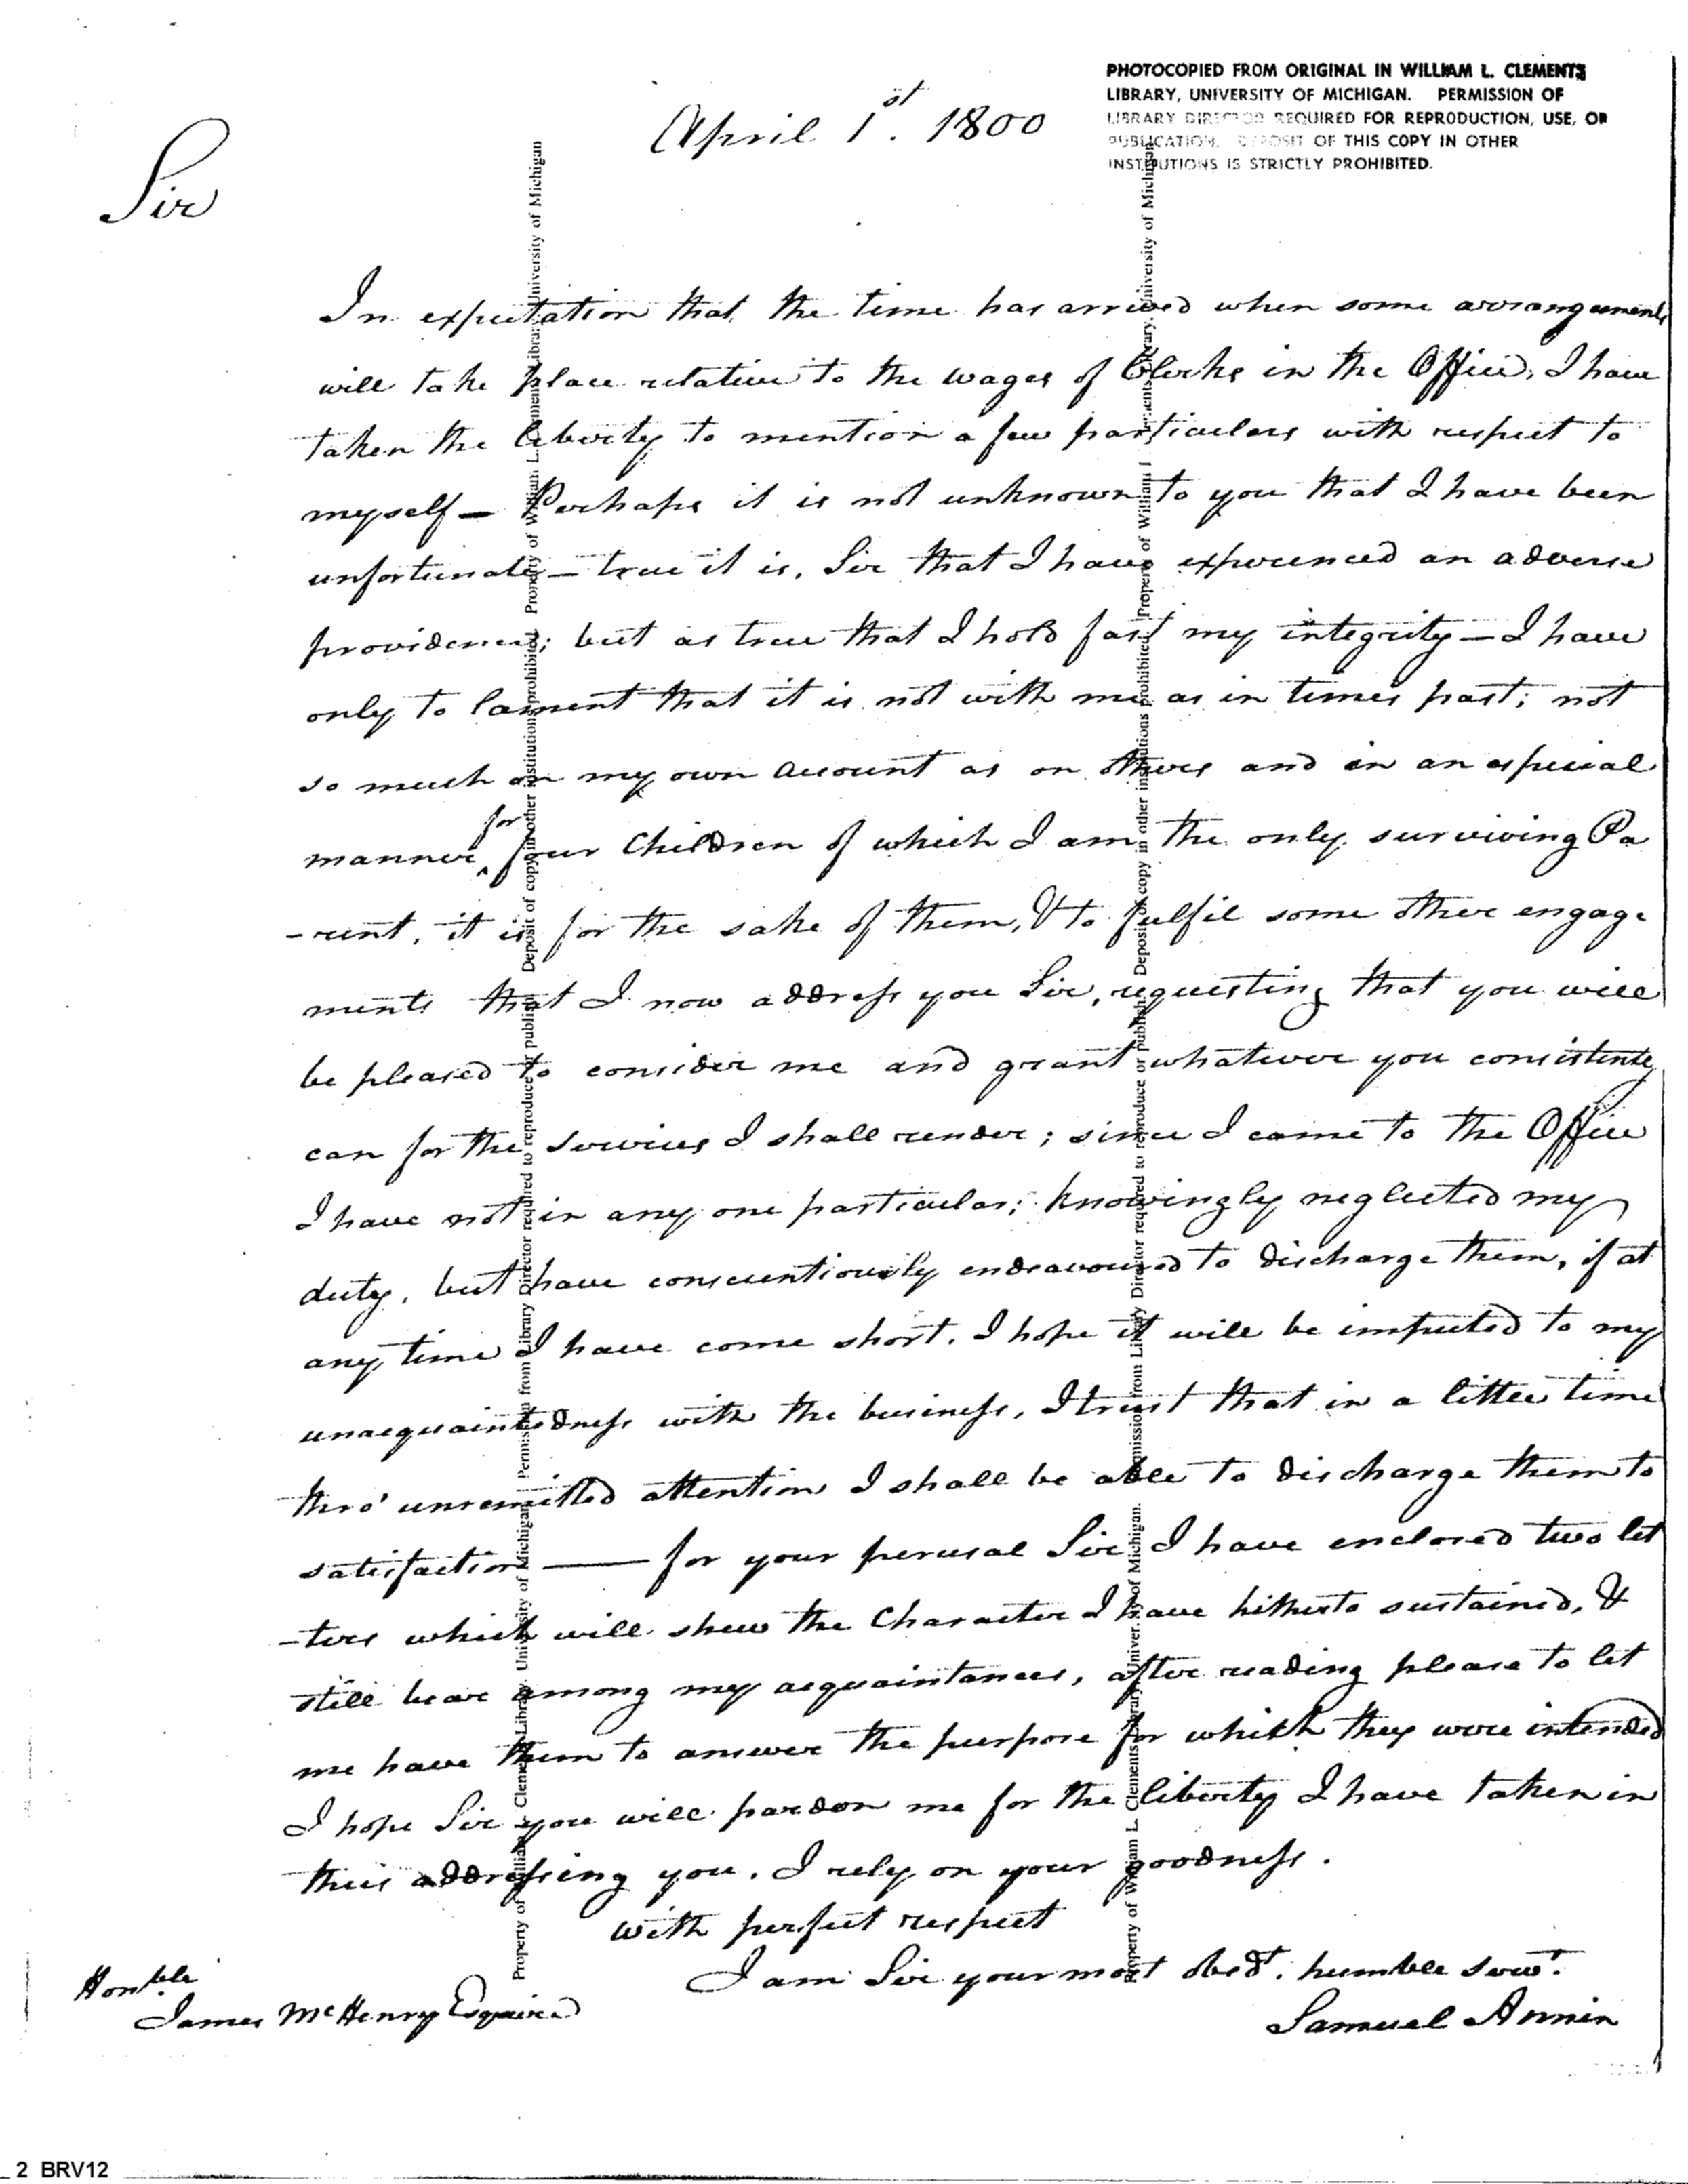 PHOTOCOPIED FROM ORIGINAL IN WILLIAM L. CLEMENTS
LIBRARY, UNIVERSITY OF MICHIGAN. PERMISSION OF
LIBRARY DIRECTOR REQUIRED FOR REPRODUCTION, USE, OR
PUBLICATION. DEPOSIT OF THIS COPY IN OTHER
INSTITUTIONS IS STRICTLY PROHIBITED.
April 1st. 1800
Sir
In expectation that the time has arrived when some arrangements
will take place relative to the wages of Clerks in the Office, I have
taken the liberty to mention a few particulars with respect to
myself — Perhaps it is not unknown to you that I have been
unfortunate — true it is, Sir that I have experienced an adverse
providence; but as true that I hold fast my integrity — I have
only to lament that it is not with me as in times past; not
so much on my own account as on others and in an especial
manner for four Children of which I am the only surviving Pa
-rent, it is for the sake of them, & to fulfil some other engage
ments that I now address you Sir, requesting that you will
be pleased to consider me and grant whatever you consistently
can for the services I shall render; since I came to the Office
I have not in any one particular; knowingly neglected my
duty, but have conscientiously endeavoured to discharge them, if at
any time I have come short, I hope it will be imputed to my
unacquaintedness with the business, I trust that in a little time
thro' unremitted attention I shall be able to discharge them to
satisfaction —— for your perusal Sir I have enclosed two let
-ters which will shew the Character I have hitherto sustained, &
still bear among my acquaintances, after reading please to let
me have them to answer the purpose for which they were intended
I hope Sir you will pardon me for the liberty I have taken in
thus addressing you, I rely on your goodness.
with perfect respect
I am Sir your most obedt. humble servt.
Samuel Annin
Honble.
James McHenry Esquire
Property of William L. Clements Library, University of Michigan. Permission from Library Director required to reproduce or publish. Deposit of copy in other institutions prohibited. Property of William L. Clements Library, University of Michigan
Property of William L. Clements Library, University of Michigan. Permission from Library Director required to reproduce or publish. Deposit of copy in other institutions prohibited. Property of William L. Clements Library, University of Michigan
2 BRV12